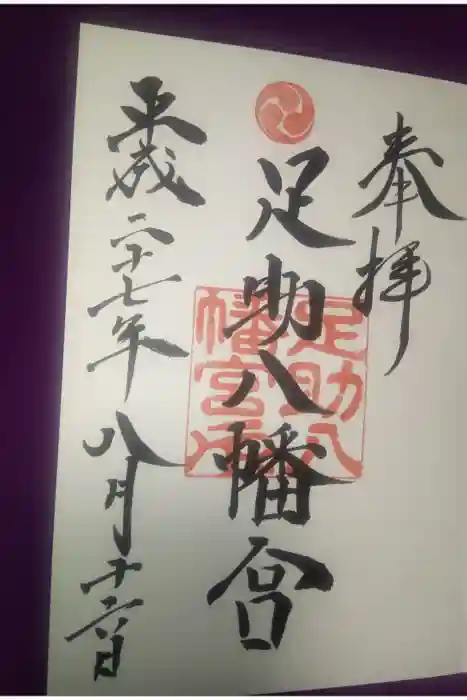 奉拝
足助八幡宮
足助八
幡宮印
平成二十七年八月十六日